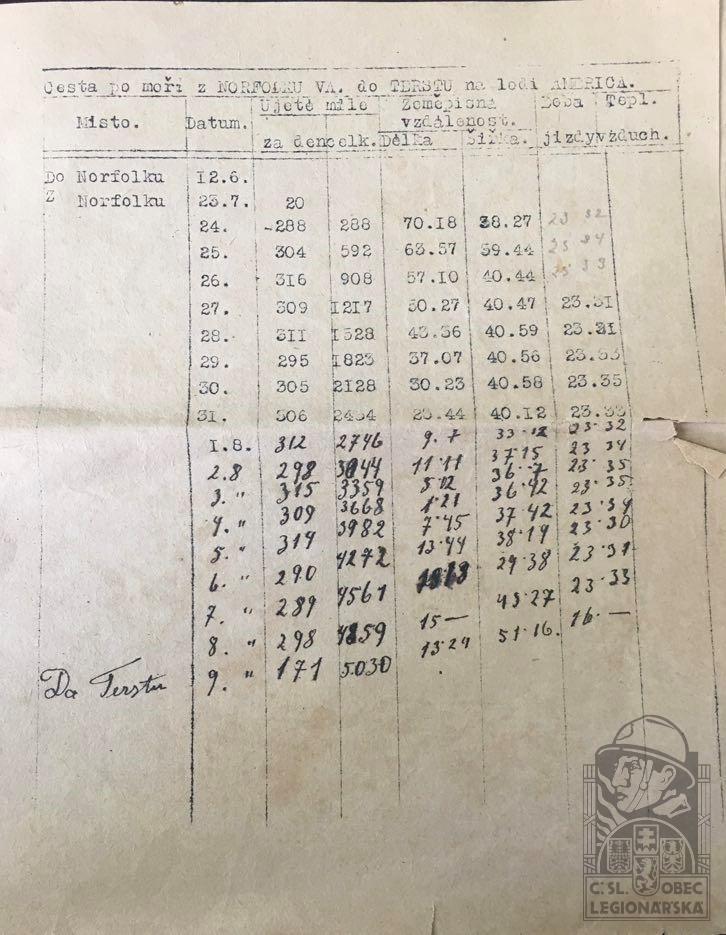 Cesta po moři z NORFOLKU VA. do TERSTU na lodi AMERICA.
Ujeté míle Zeměpisná Doba Tepl.
Místo. Datum. vzdálenost.
za den celk. Délka Šířka. jízdy vzduch.
Do Norfolku 12.6.
Z Norfolku 23.7. 20
24. -288 288 70.18 38.27 23 32
25. 304 592 63.57 39.44 23 34
26. 316 908 57.10 40.44
27. 309 1217 50.27 40.47 23.31
28. 311 1528 43.36 40.59 23.31
29. 295 1823 37.07 40.56 23.33
30. 305 2128 30.23 40.58 23.35
31. 306 2434 23.44 40.12 23.33
1.8. 312 2746 9.7 23 32
2.8 298 3044 11.11 37.15 23 34
3. " 315 3359 5.12 36.7 23.35
4. " 309 3668 1.21 36.42 23.35
5. " 314 3982 7.45 37.42 23.34
6. " 290 4272 13.44 38.19 23.30
7. " 289 4561 39.38 23.31
8. " 298 4859 15— 43.27 23.33
Do Terstu 9. " 171 5030 13.24 51.16. 16.—
Č.SL. OBEC
LEGIONÁŘSKÁ